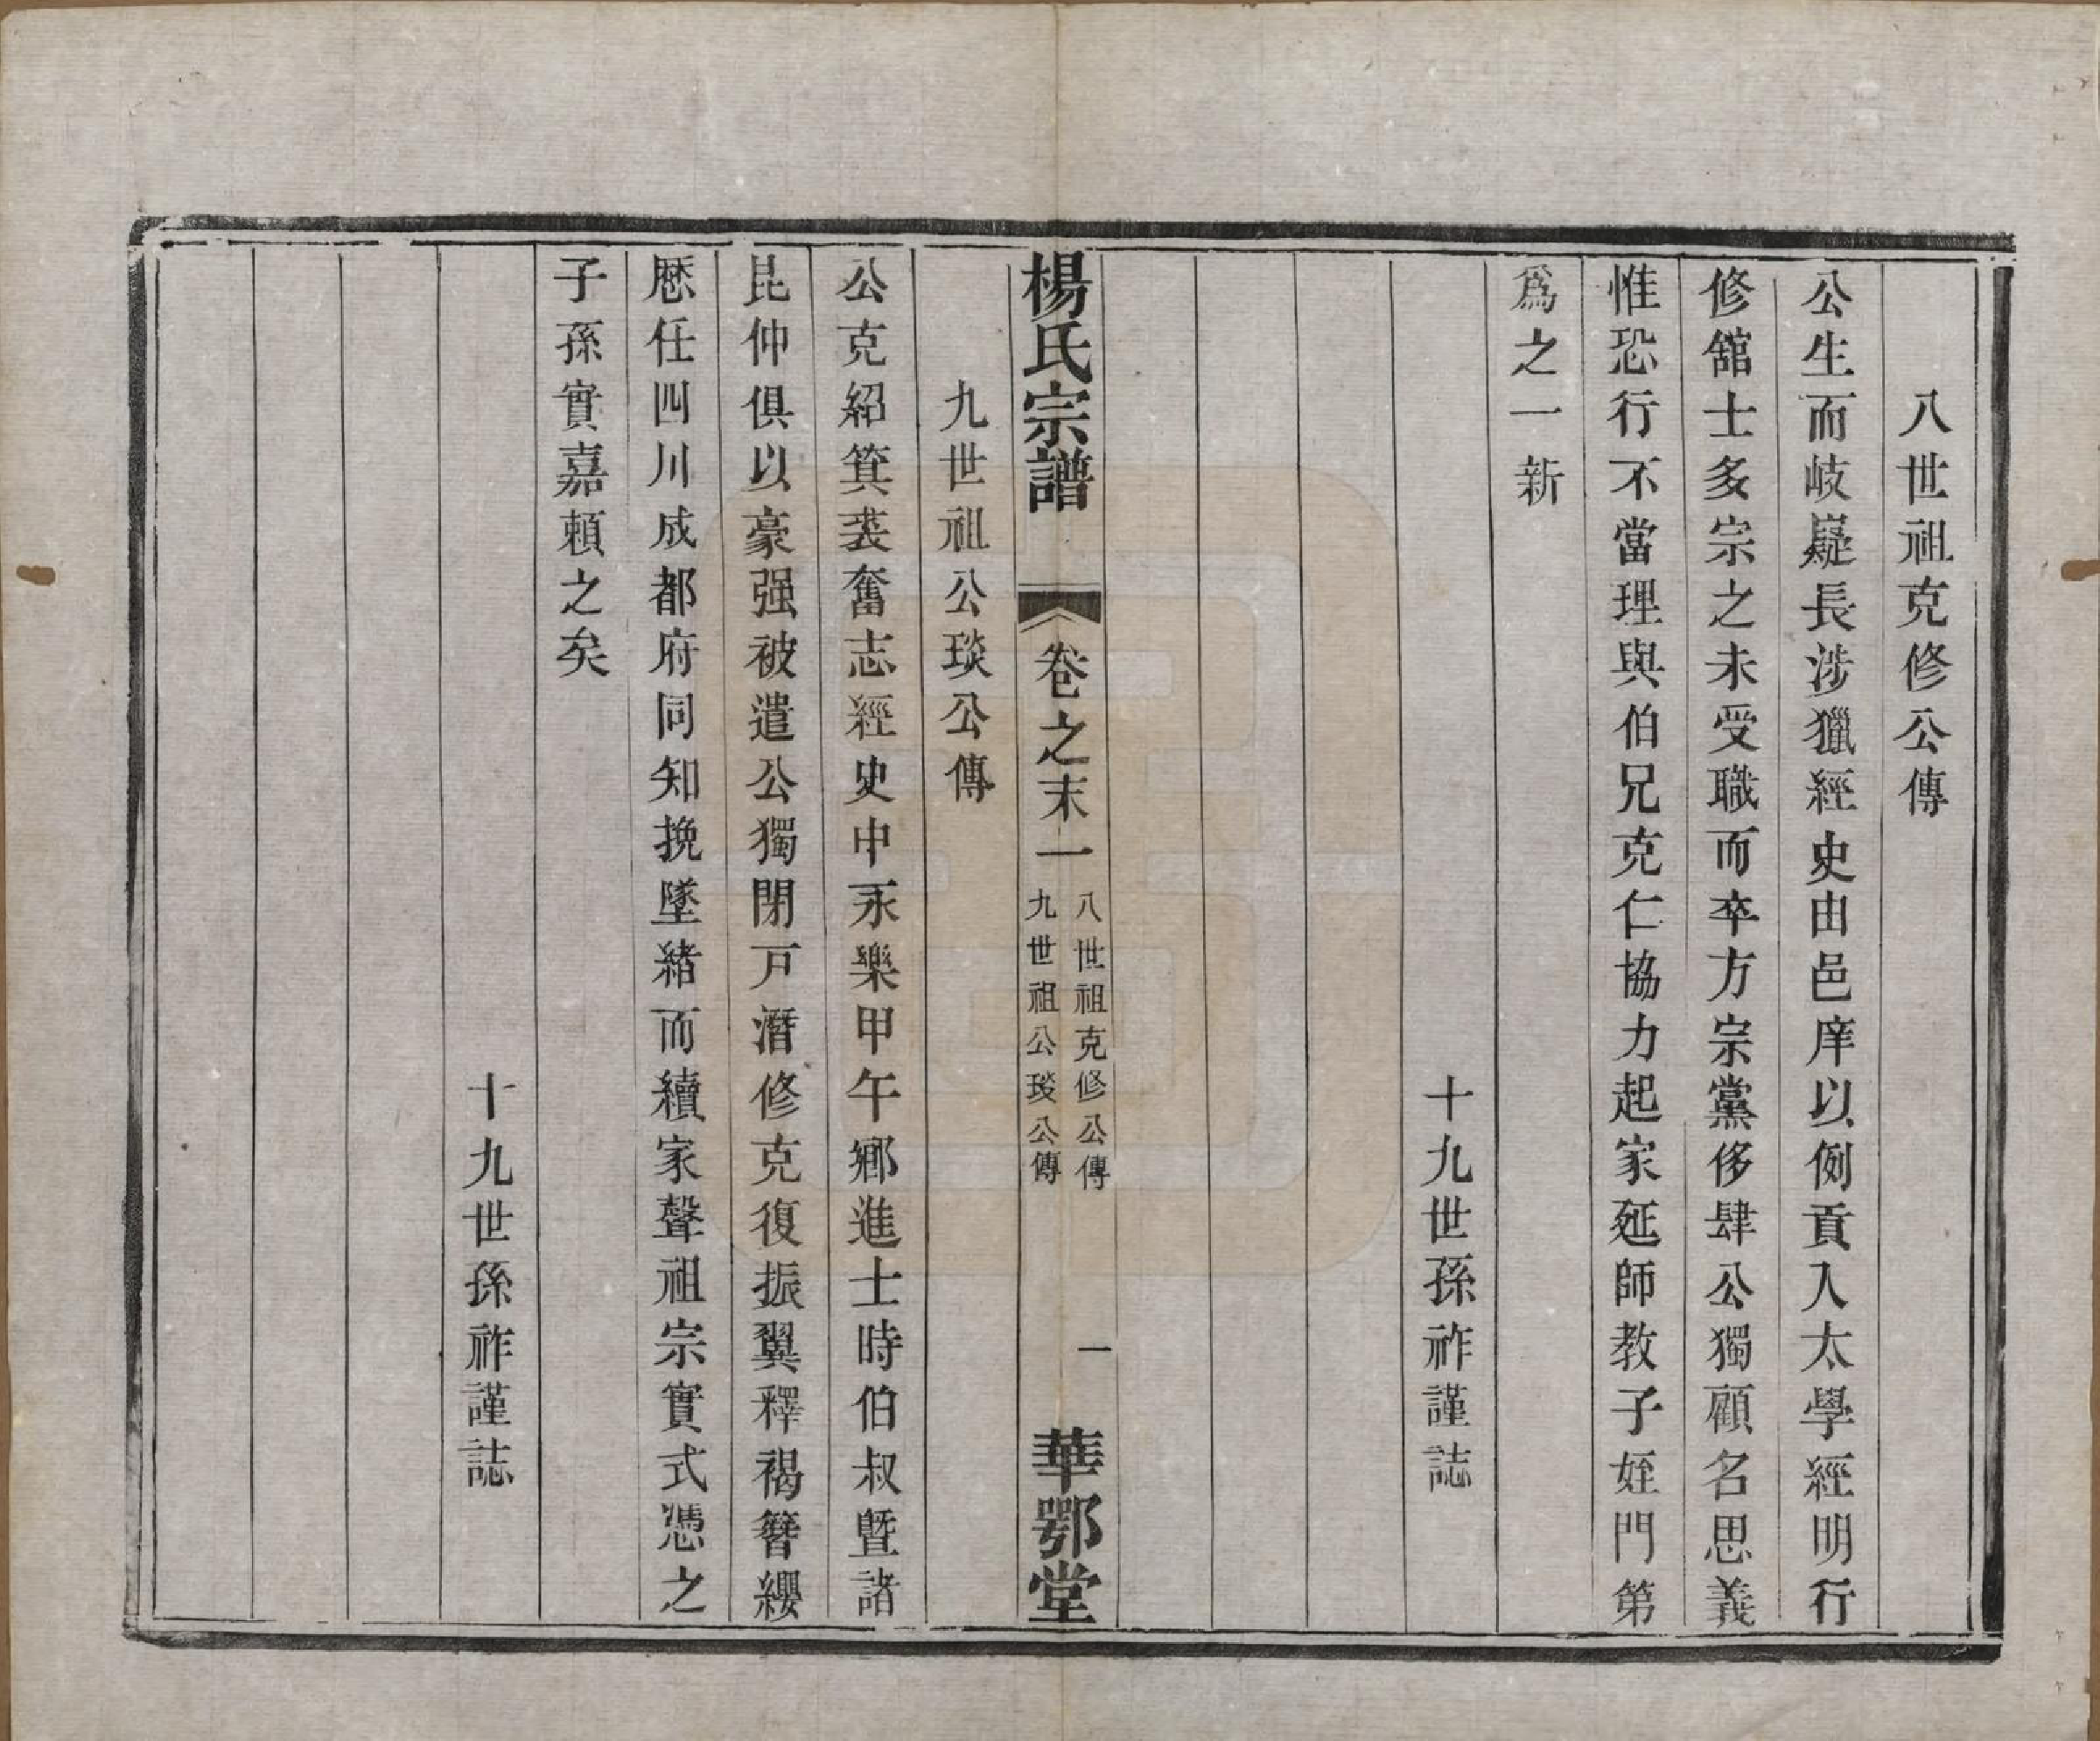 八世祖克修公傳
公生而岐嶷長涉獵經史由邑庠以例貢入太學經明行
修舘士多宗之未受職而卒方宗黨侈肆公獨顧名思義
惟恐行不當理與伯兄克仁協力起家延師教子姪門第
爲之一新
十九世孫祚謹誌
楊氏宗譜
卷之末一
八世祖克修公傳
九世祖公琰公傳
一
華鄂堂
九世祖公琰公傳
公克紹箕裘奮志經史中永樂甲午鄉進士時伯叔暨諸
昆仲俱以豪强被遣公獨閉戸潛修克復振翼釋褐簪纓
歷任四川成都府同知挽墜緒而續家聲祖宗實式憑之
子孫實嘉賴之矣
十九世孫祚謹誌